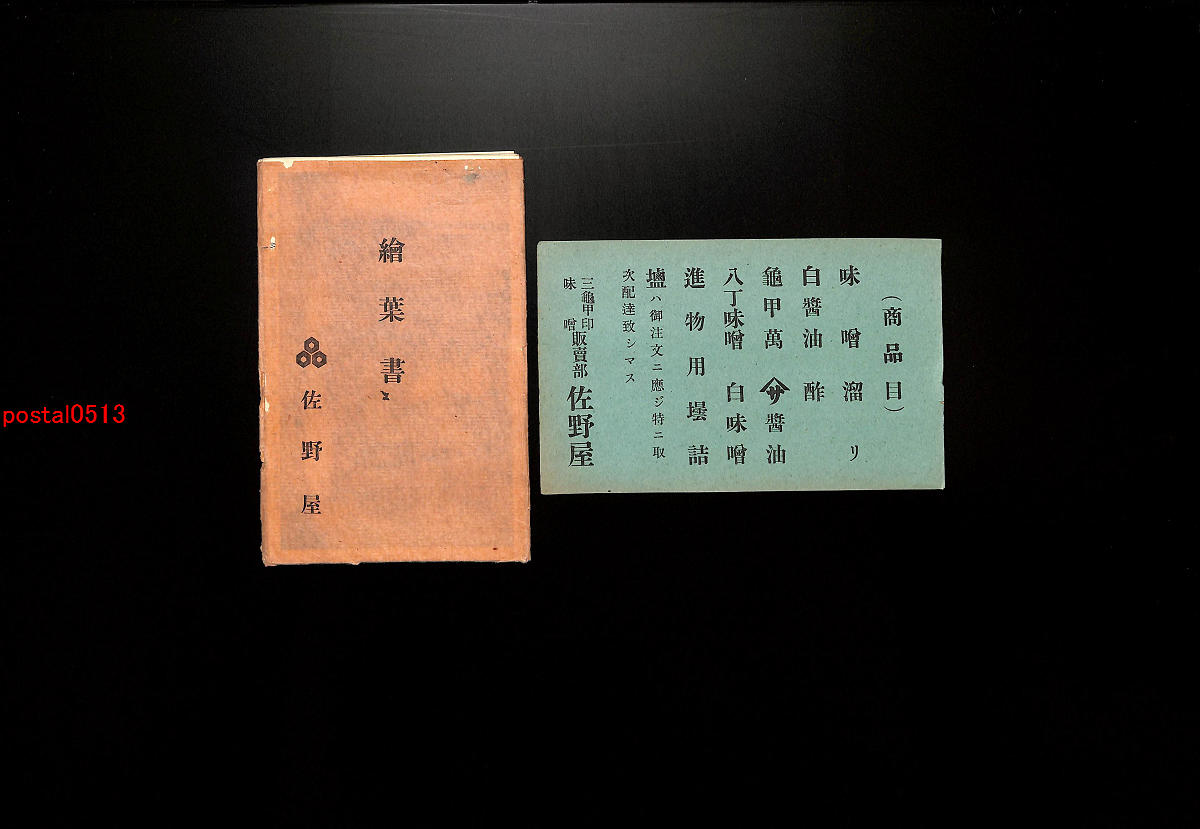 postal0513
繪葉書
佐野屋
(商品目)
味噌溜リ
白醬油 酢
龜甲萬 サ醬油
八丁味噌 白味噌
進物用壜詰
鹽ハ御注文ニ應ジ特ニ取
次配達致シマス
三龜甲印
味噌
販賣部 佐野屋